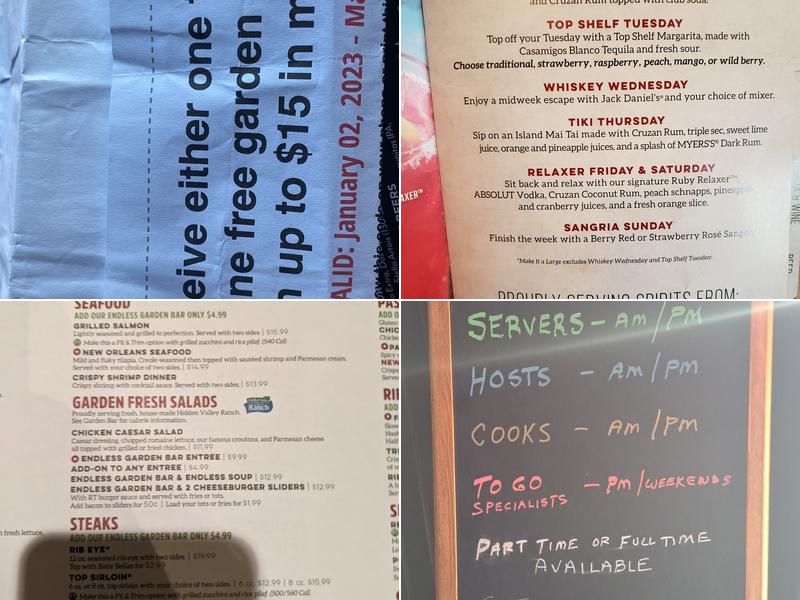 eive either one
ne free garden
n up to $15 in m
ALID: January 02, 2023 - Ma
and Cruzan Rum topped with club soda.
TOP SHELF TUESDAY
Top off your Tuesday with a Top Shelf Margarita, made with
Casamigos Blanco Tequila and fresh sour.
Choose traditional, strawberry, raspberry, peach, mango, or wild berry.
WHISKEY WEDNESDAY
Enjoy a midweek escape with Jack Daniel's® and your choice of mixer.
TIKI THURSDAY
Sip on an Island Mai Tai made with Cruzan Rum, triple sec, sweet lime
juice, orange and pineapple juices, and a splash of MYERS'S® Dark Rum.
RELAXER FRIDAY & SATURDAY
Sit back and relax with our signature Ruby Relaxer™.
ABSOLUT Vodka, Cruzan Coconut Rum, peach schnapps, pineapple
and cranberry juices, and a fresh orange slice.
SANGRIA SUNDAY
Finish the week with a Berry Red or Strawberry Rosé Sang
*Make it a Large excludes Whiskey Wednesday and Top Shelf Tuesday.
PROUDLY SERVING SPIRITS FROM:
AXER™
WINE
BEER
BEERS
SEAFOOD
ADD OUR ENDLESS GARDEN BAR ONLY $4.99
GRILLED SALMON
Lightly seasoned and grilled to perfection. Served with two sides. | $15.99
Make this a Fit & Trim option with grilled zucchini and rice pilaf. (540 Cal)
NEW ORLEANS SEAFOOD
Mild and flaky tilapia, Creole-seasoned then topped with sautéed shrimp and Parmesan cream.
Served with your choice of two sides. | $14.99
CRISPY SHRIMP DINNER
Crispy shrimp with cocktail sauce. Served with two sides. | $13.99
GARDEN FRESH SALADS
Proudly serving fresh, house-made Hidden Valley Ranch.
See Garden Bar for calorie information.
Ranch
CHICKEN CAESAR SALAD
Caesar dressing, chopped romaine lettuce, our famous croutons, and Parmesan cheese
all topped with grilled or fried chicken. | $11.99
ENDLESS GARDEN BAR ENTREE | $9.99
ADD-ON TO ANY ENTREE | $4.99
ENDLESS GARDEN BAR & ENDLESS SOUP | $12.99
ENDLESS GARDEN BAR & 2 CHEESEBURGER SLIDERS | $12.99
With RT burger sauce and served with fries or tots.
Add bacon to sliders for 50¢ | Load your tots or fries for $1.99
STEAKS
ADD OUR ENDLESS GARDEN BAR ONLY $4.99
RIB EYE*
12 oz. seasoned rib-eye with two sides. | $19.99
Top with Baby Bellas for $2.99
TOP SIRLOIN*
6 oz. or 8 oz. top sirloin with your choice of two sides. | 6 oz. $12.99 | 8 oz. $15.99
Make this a Fit & Trim option with grilled zucchini and rice pilaf. (500/560 Cal)
h fresh lettuce,
SERVERS - AM/PM
HOSTS - AM/PM
COOKS - AM/PM
TO GO
SPECIALISTS - PM/WEEKENDS
PART TIME OR FULL TIME
AVAILABLE